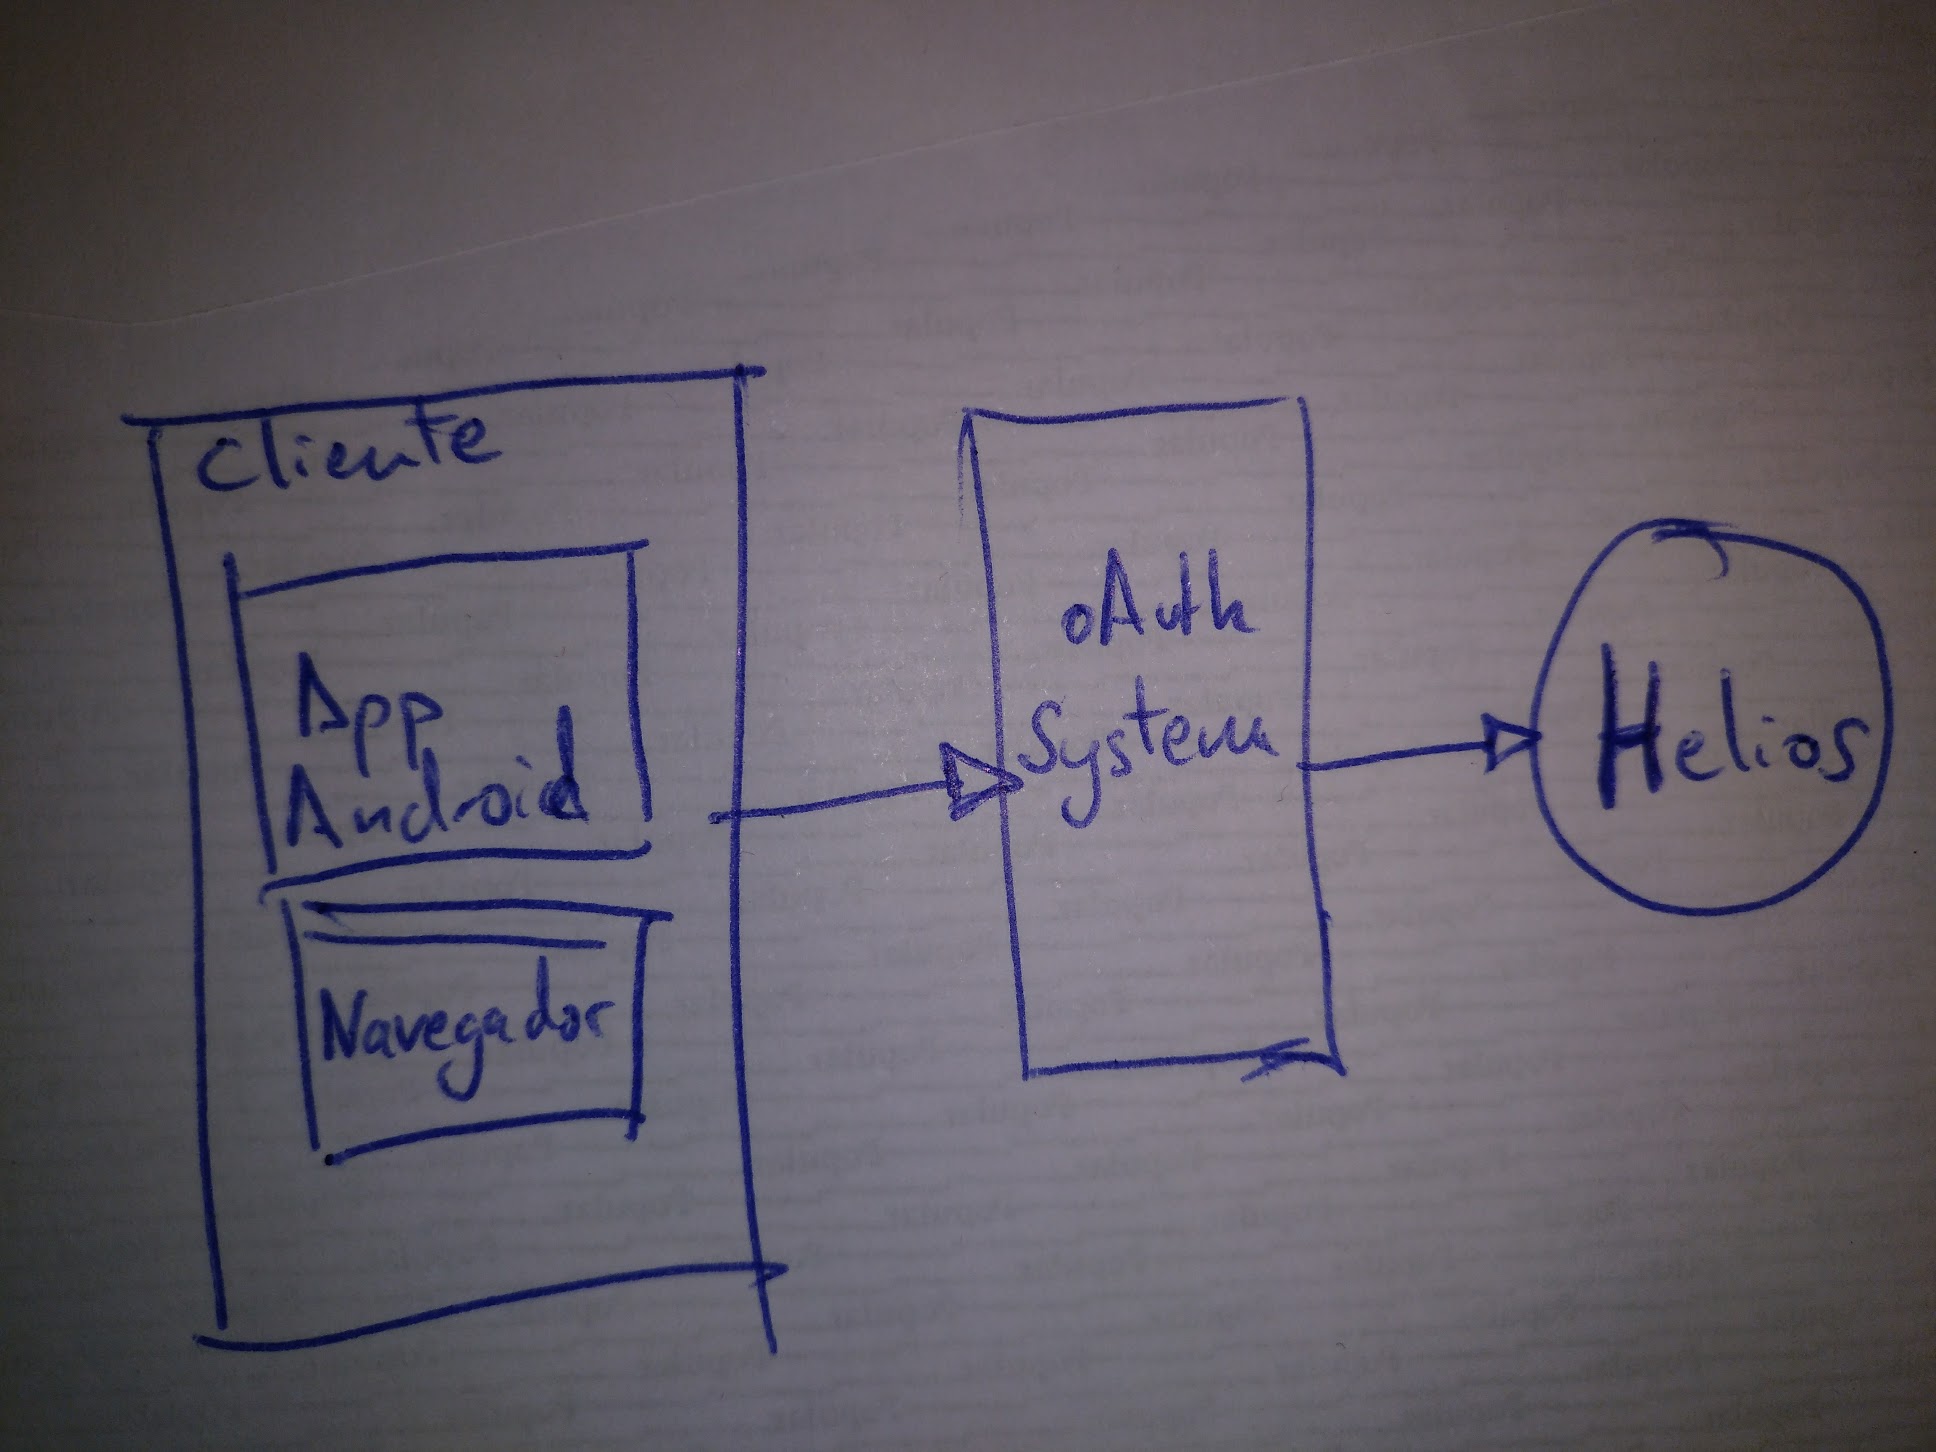 Cliente
App
Android
Navegador
oAuth
System
Helios